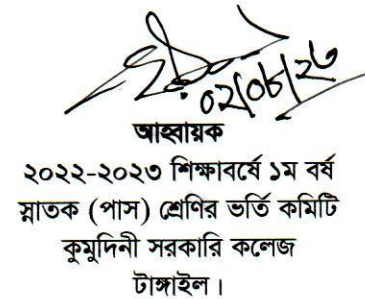 ০২/০৮/২৩
আহ্বায়ক
২০২২-২০২৩ শিক্ষাবর্ষে ১ম বর্ষ
স্নাতক (পাস) শ্রেণির ভর্তি কমিটি
কুমুদিনী সরকারি কলেজ
টাঙ্গাইল।